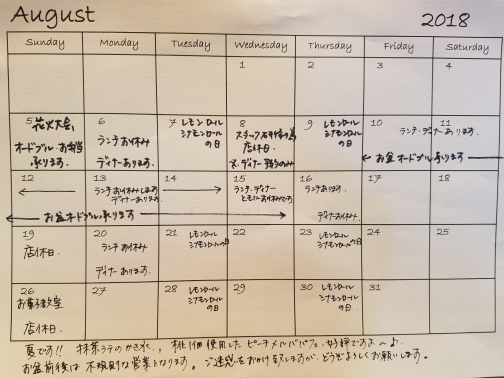 August 2018
Sunday Monday Tuesday Wednesday Thursday Friday Saturday
1 2 3 4
5 花火大会、
オードブル・お弁当
承ります。
6
ランチお休み
ディナーあります。
7 レモンロール
シナモンロール
の日
8
スタッフ研修の為
店休日。
※ディナー
9 レモンロール
シナモンロール
の日
10 11
ランチ・ディナーあります。
お盆オードブル承ります
12
13
ランチお休みします
ディナーあります。
14
15
ランチ・ディナー
ともにお休みです。
16
ランチあります。
ディナーお休み。
17
18
お盆オードブル承ります
19
店休日。
20
ランチお休み
ディナーあります。
21 レモンロール
シナモンロールの日
22
23 レモンロール
シナモンロールの日
24
25
26
お菓子教室
店休日。
27
28 レモンロール
シナモンロール
の日
29
30 レモンロール
シナモンロール
の日
31
夏です!! 抹茶ラテのかき氷、桃1個使用したピーチメルバパフェ、好評ですよ〜♪
お盆前後は不規則な営業となります。ご迷惑をおかけ致しますが、どうぞよろしくお願いします。